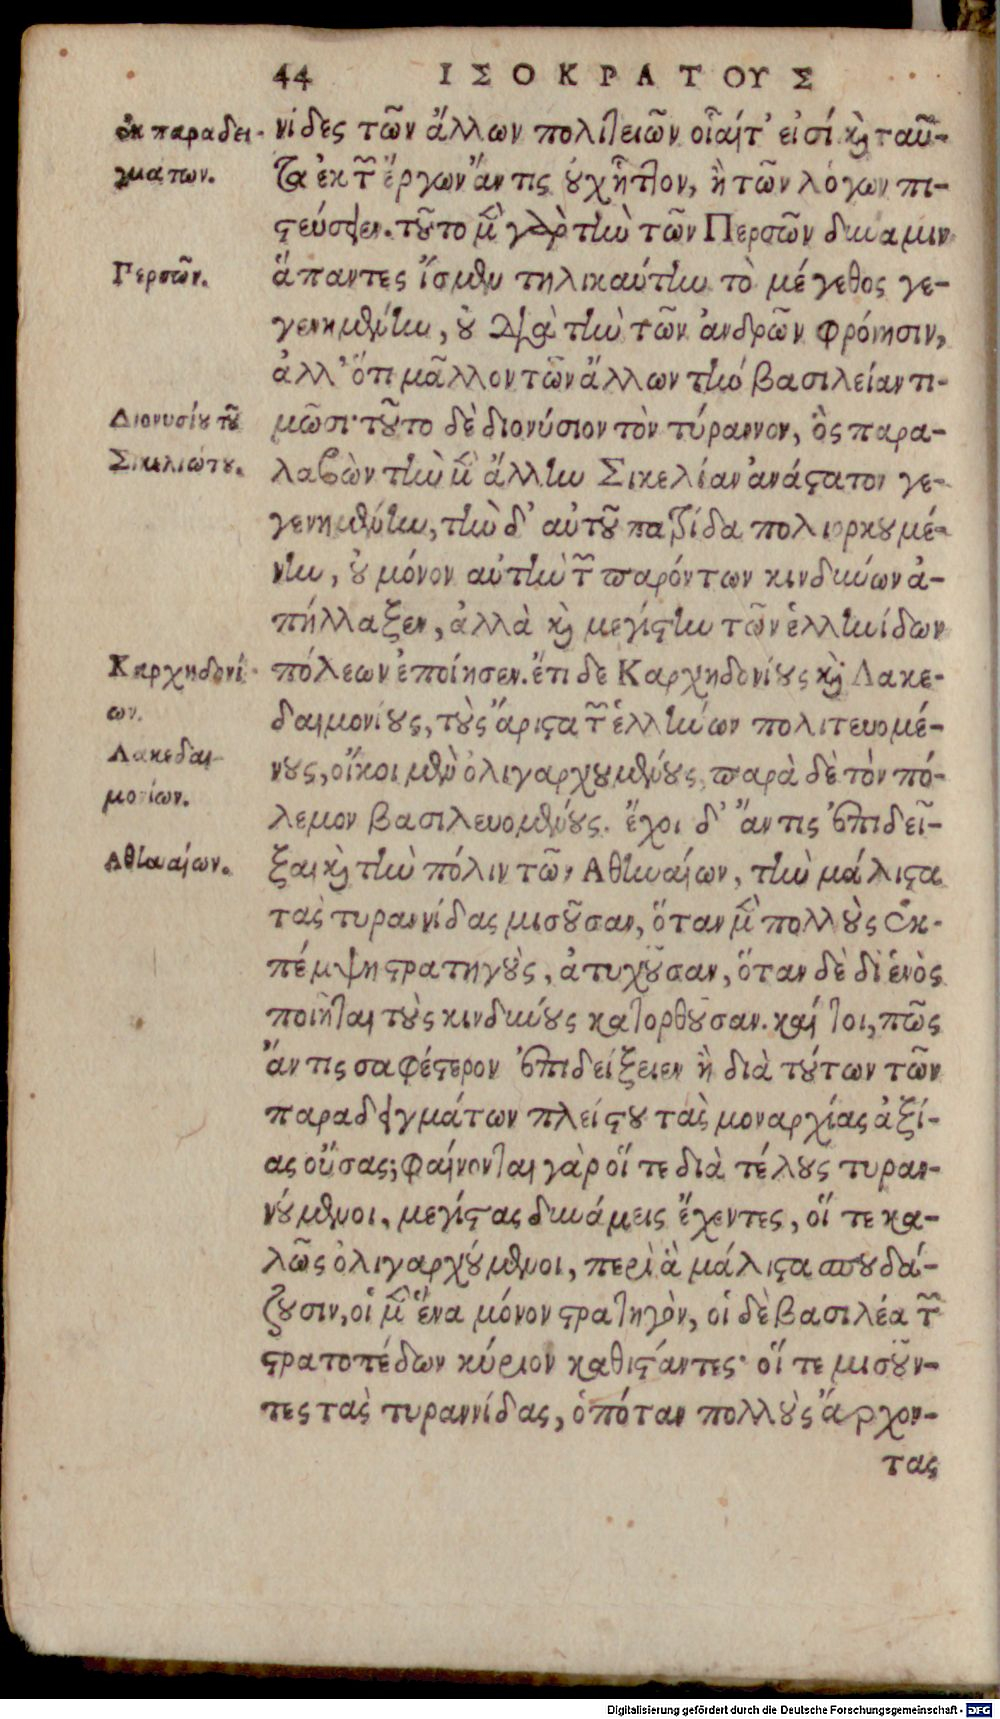 44 ΙΣΟΚΡΑΤΟΥΣ
ἐκ παραδει-
γμάτων.
Περσῶν.
Διονυσίου τοῦ
Σικελιώτου.
Καρχηδονί-
ων.
Λακεδαι-
μονίων.
Ἀθηναίων.
νίδες τῶν ἄλλων πολιτειῶν οἷαί τ’ εἰσί καὶ ταῦ-
τα ἐκ τῶν ἔργων ἄν τις οὐχ ἧττον, ἢ τῶν λόγων πι-
στεύσειεν. τοῦτο μὲν γὰρ τὴν τῶν Περσῶν δύναμιν
ἅπαντες ἴσμεν τηλικαύτην τὸ μέγεθος γε-
γενημένην, οὐ διὰ τὴν τῶν ἀνδρῶν φρόνησιν,
ἀλλ’ ὅτι μᾶλλον τῶν ἄλλων τὴν βασιλείαν τι-
μῶσι· τοῦτο δὲ διονύσιον τὸν τύραννον, ὃς παρα-
λαβὼν τὴν μὲν ἄλλην Σικελίαν ἀνάστατον γε-
γενημένην, τὴν δ’ αὐτοῦ πατρίδα πολιορκουμέ-
νην, οὐ μόνον αὐτὴν τῶν παρόντων κινδύνων ἀ-
πήλλαξεν, ἀλλὰ καὶ μεγίστην τῶν ἑλληνίδων
πόλεων ἐποίησεν. ἔτι δε Καρχηδονίους καὶ Λακε-
δαιμονίους, τοὺς ἄριστα τῶν ἑλλήνων πολιτευομέ-
νους, οἴκοι μὲν ὀλιγαρχουμένους, παρὰ δὲ τὸν πό-
λεμον βασιλευομένους. ἔχοι δ’ ἄν τις ἐπιδεῖ-
ξαι καὶ τὴν πόλιν τῶν Ἀθηναίων, τὴν μάλιστα
τὰς τυραννίδας μισοῦσαν, ὅταν μὲν πολλοὺς ἐκ-
πέμψῃ στρατηγοὺς, ἀτυχοῦσαν, ὅταν δὲ δι’ ἑνὸς
ποιῆται τοὺς κινδύνους κατορθοῦσαν. καί τοι, πῶς
ἄν τις σαφέστερον ἐπιδείξειεν ἢ διὰ τούτων τῶν
παραδειγμάτων πλείστου τὰς μοναρχίας ἀξί-
ας οὔσας; φαίνονται γὰρ οἵ τε διὰ τέλους τυραν-
νούμενοι, μεγίστας δυνάμεις ἔχοντες, οἵ τε κα-
λῶς ὀλιγαρχούμενοι, περὶ ἃ μάλιστα σπουδά-
ζουσιν, οἱ μὲν ἕνα μόνον στρατηγὸν, οἱ δὲ βασιλέα τῶν
στρατοπέδων κύριον καθιστάντες· οἵ τε μισοῦν-
τες τὰς τυραννίδας, ὁπόταν πολλοὺς ἄρχον-
τας
Digitalisierung gefördert durch die Deutsche Forschungsgemeinschaft - DFG